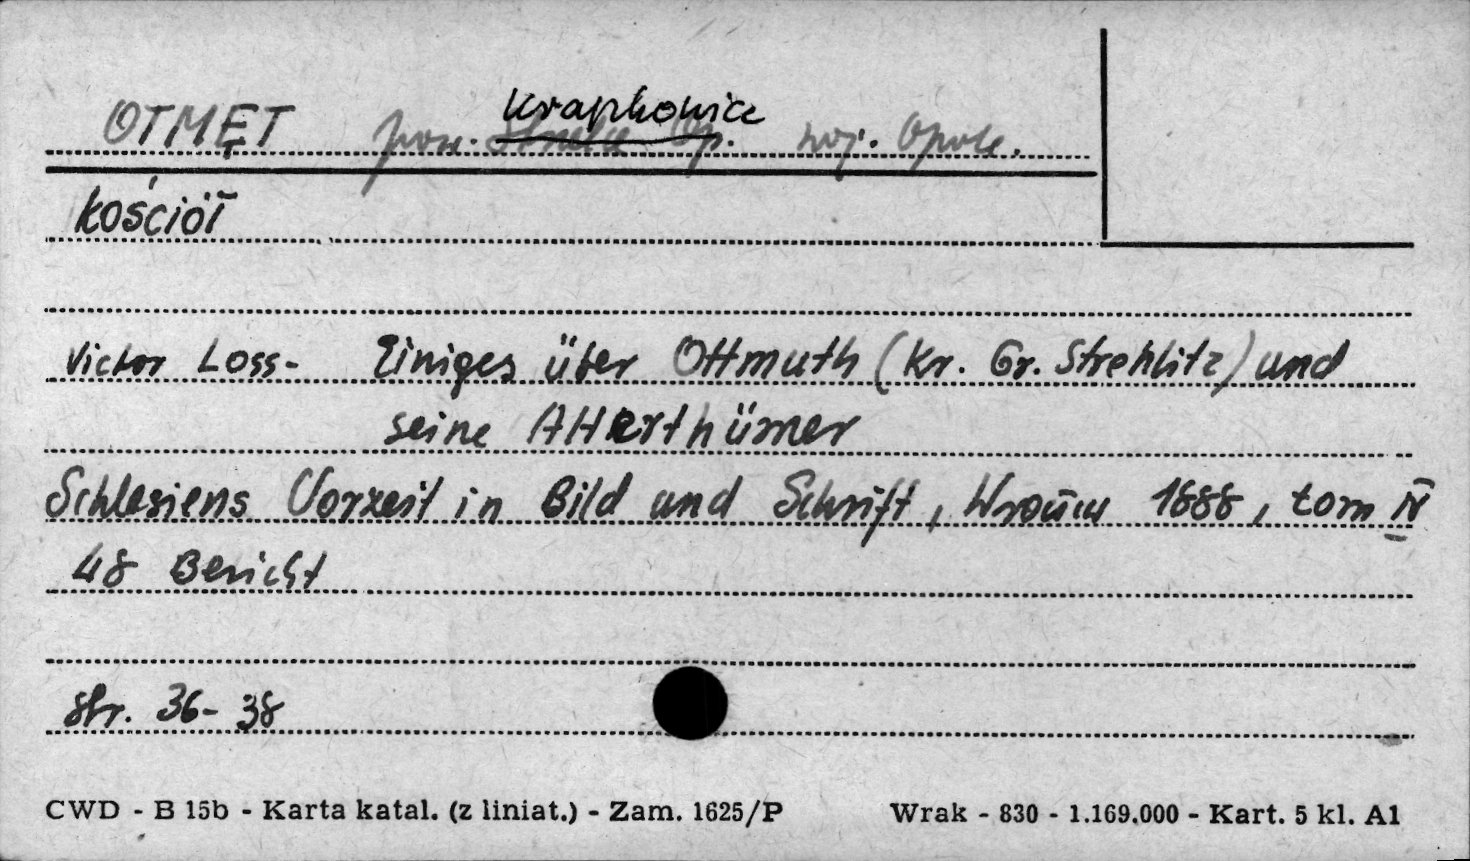 OTMĘT pow. Strzelce Op. woj. Opole.
Krapkowice
kościół
Victor Loss - Einiges über Ottmuth (Kr. Gr. Strehlitz) und
seine Alterthümer
Schlesiens Vorzeit in Bild und Schrift, Wrocław 1888, tom IV
48 Bericht
str. 36-38
CWD - B 15b - Karta katal. (z liniat.) - Zam. 1625/P Wrak - 830 - 1.169.000 - Kart. 5 kl. A1